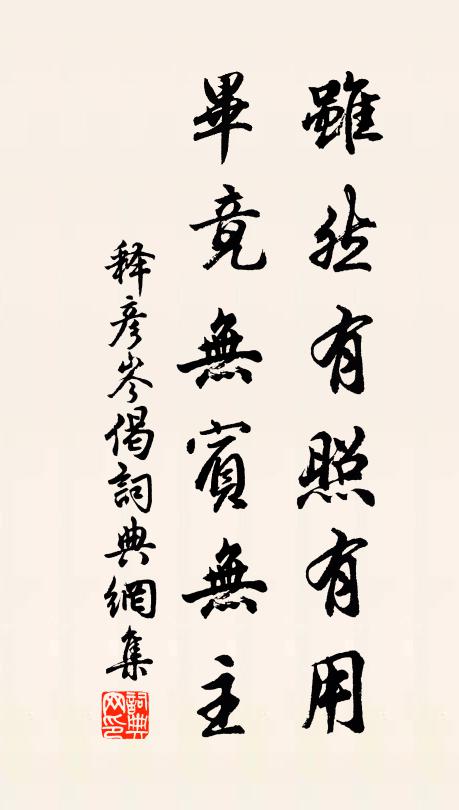 雖然有照有用
畢竟無賓無主
释彦岑偈詞典網集
詞典
网印